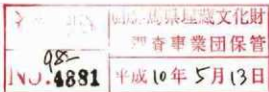 馬県埋蔵文化財
調査事業団保管
982
NO.4881
平成10年5月13日